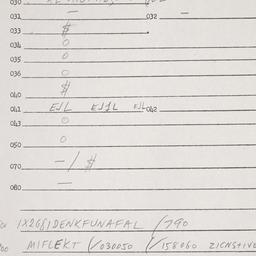 030
031 — 032 —
033 $
034 O
035 O
036 O
040 $
041 EJL EJ1L EJL 042
043 O
050 O
070 -/$
080 —
1X268) DENKFUNAFAL /790
MIFLEKT (/030050 (/158060